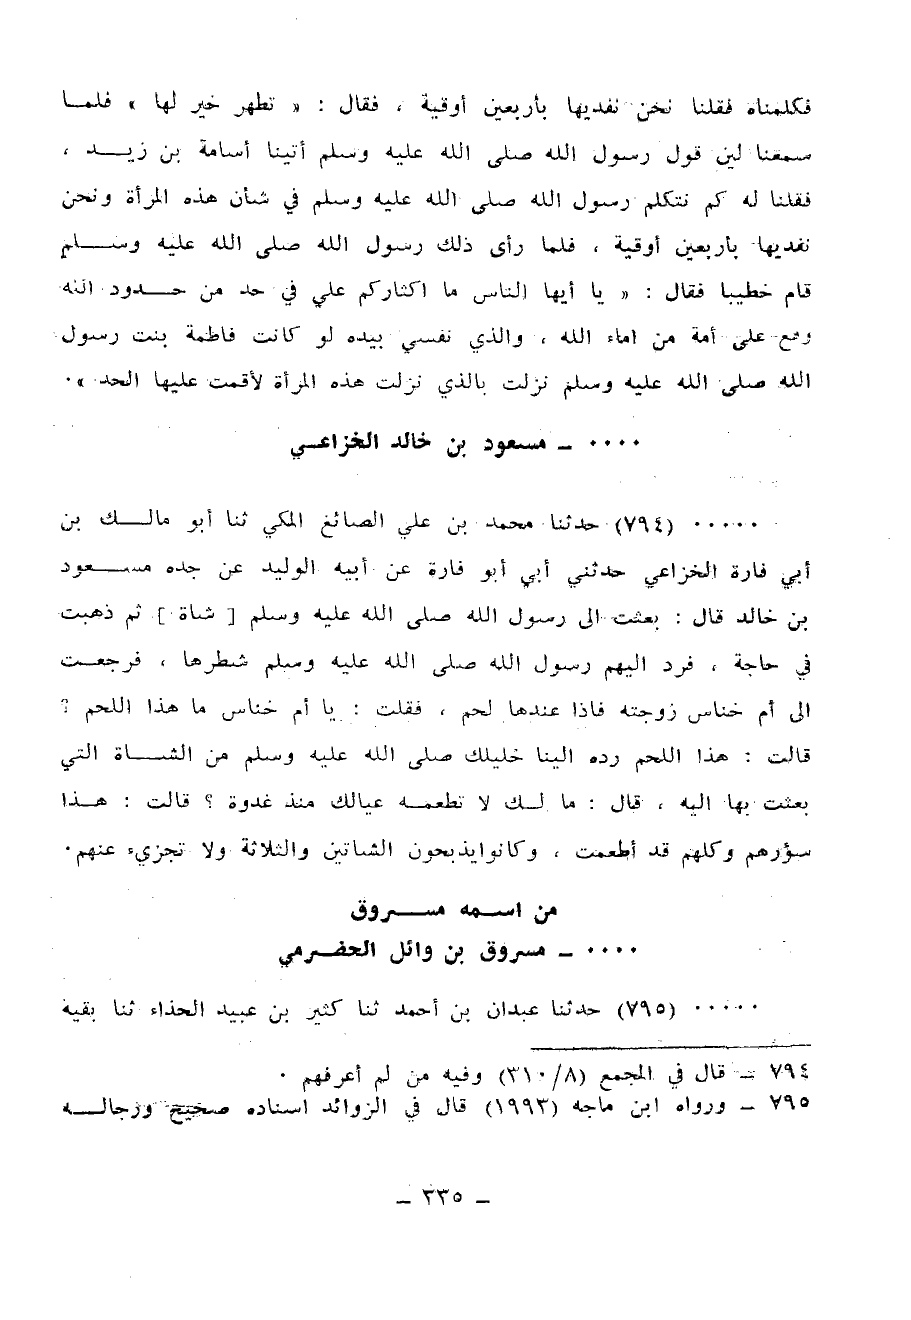 فكلمناه فقلنا نحن نفديها بأربعين أوقية ، فقال : « تطهر خير لها » فلمـا
سمعنا لين قول رسول الله صلى الله عليه وسلم أتينا أسامة بن زيـد ،
فقلنا له كم نتكلم رسول الله صلى الله عليه وسلم في شأن هذه المرأة ونحن
نفديها بأربعين أوقية ، فلما رأى ذلك رسول الله صلى الله عليه وسـلم
قام خطيبا فقال : « يا أيها الناس ما اكثاركم علي في حد من حـدود الله
وقع على أمة من اماء الله ، والذي نفسي بيده لو كانت فاطمة بنت رسول
الله صلى الله عليه وسلم نزلت بالذي نزلت هذه المرأة لأقمت عليها الحد » ٠
٠٠٠٠ ـ مسعود بن خالد الخزاعـي
٠٠٠٠٠ (٧٩٤) حدثنا محمد بن علي الصائغ المكي ثنا أبو مالـك بن
أبي فارة الخزاعي حدثني أبي أبو فارة عن أبيه الوليد عن جده مسـعود
بن خالد قال : بعثت الى رسول الله صلى الله عليه وسلم [ شاة ] ثم ذهبت
في حاجة ، فرد اليهم رسول الله صلى الله عليه وسلم شطرها ، فرجعـت
الى أم خناس زوجته فاذا عندها لحم ، فقلت : يا أم خناس ما هذا اللحم ؟
قالت : هذا اللحم رده الينا خليلك صلى الله عليه وسلم من الشـاة التي
بعثت بها اليه ، قال : ما لـك لا تطعمـه عيالك منذ غدوة ؟ قالت : هـذا
سؤرهم وكلهم قد أطعمت ، وكانوايذبحون الشاتين والثلاثة ولا تجزيء عنهم ٠
من اسـمه مسـروق
٠٠٠٠ ـ مسروق بن وائل الحضـرمي
٠٠٠٠٠ (٧٩٥) حدثنا عبدان بن أحمد ثنا كثير بن عبيد الحذاء ثنا بقية
٧٩٤ ـ قال في المجمع (٣١٠/٨) وفيه من لم أعرفهم ٠
٧٩٥ ـ ورواه ابن ماجه (١٩٩٣) قال في الزوائد اسناده صحيح ورجالـه
ـ ٣٣٥ ـ